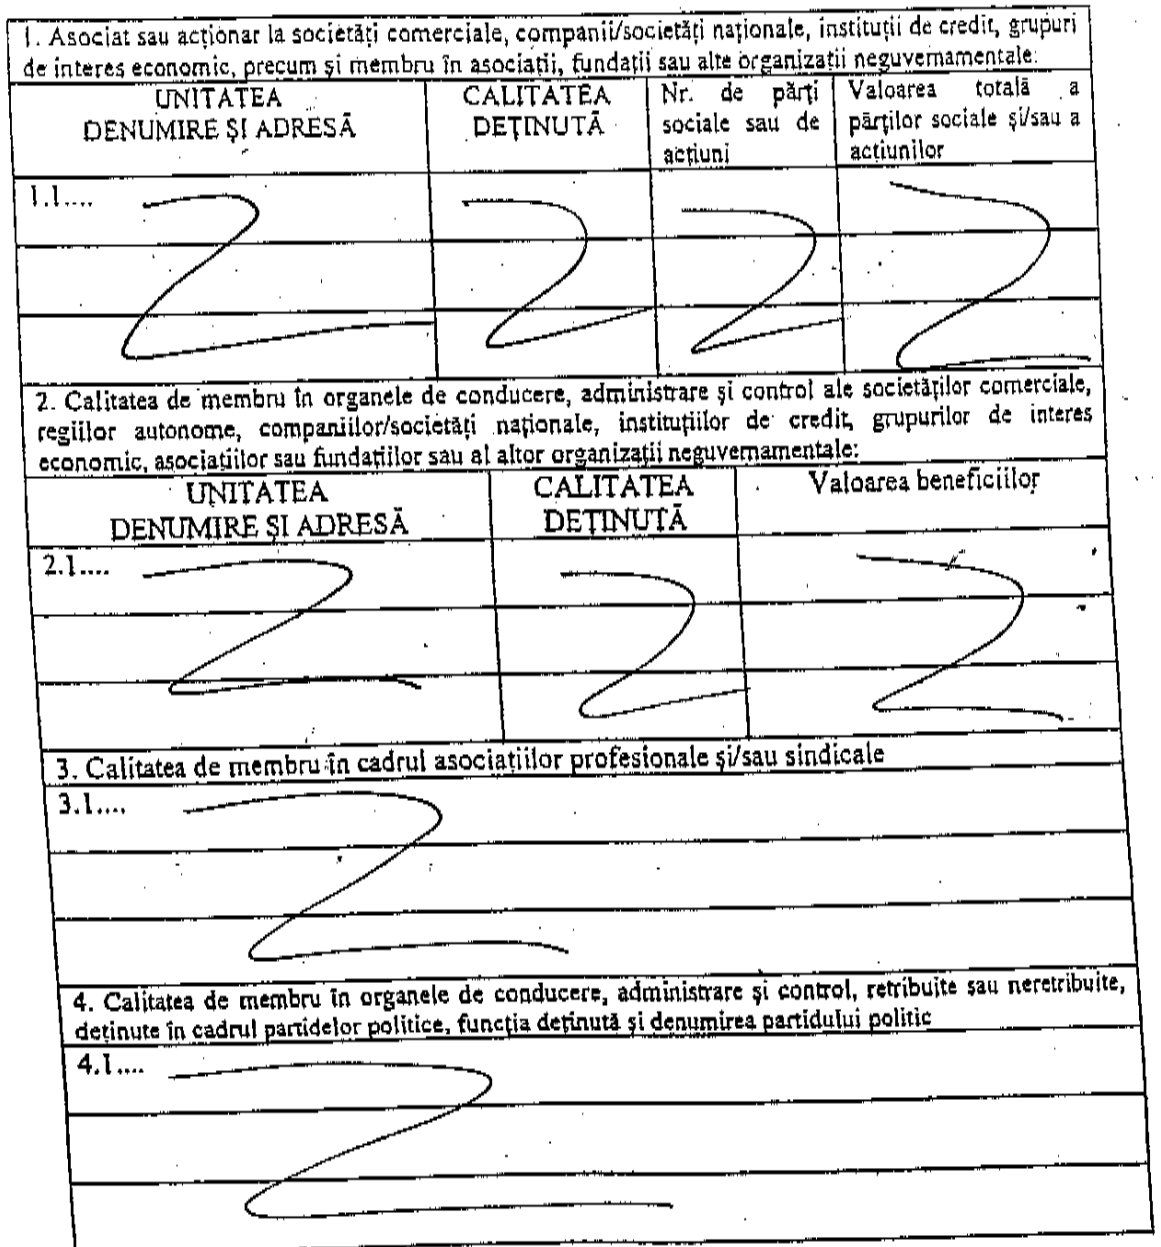 1. Asociat sau acționar la societăți comerciale, companii/societăți naționale, instituții de credit, grupuri
de interes economic, precum și membru în asociații, fundații sau alte organizații neguvernamentale:
UNITATEA
DENUMIRE ȘI ADRESĂ
CALITATEA
DEȚINUTĂ
Nr. de părți
sociale sau de
acțiuni
Valoarea totală a
părților sociale și/sau a
acțiunilor
1.1....
2. Calitatea de membru în organele de conducere, administrare și control ale societăților comerciale,
regiilor autonome, companiilor/societăți naționale, instituțiilor de credit, grupurilor de interes
economic, asociațiilor sau fundațiilor sau al altor organizații neguvernamentale:
UNITATEA
DENUMIRE ȘI ADRESĂ
CALITATEA
DEȚINUTĂ
Valoarea beneficiilor
2.1....
3. Calitatea de membru în cadrul asociațiilor profesionale și/sau sindicale
3.1....
4. Calitatea de membru în organele de conducere, administrare și control, retribuite sau neretribuite,
deținute în cadrul partidelor politice, funcția deținută și denumirea partidului politic
4.1....